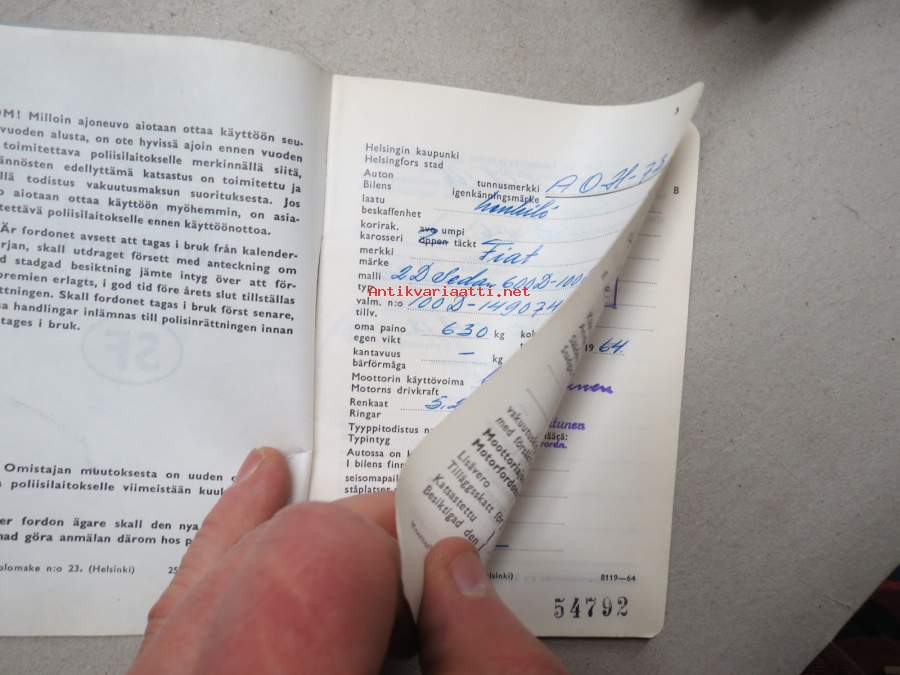 OM! Milloin ajoneuvo aiotaan ottaa käyttöön seu-
vuoden alusta, on ote hyvissä ajoin ennen vuoden
toimitettava poliisilaitokselle merkinnällä siitä,
ännösten edellyttämä katsastus on toimitettu ja
llä todistus vakuutusmaksun suorituksesta. Jos
o aiotaan ottaa käyttöön myöhemmin, on asia-
tettävä poliisilaitokselle ennen käyttöönottoa.
Är fordonet avsett att tagas i bruk från kalender-
rjan, skall utdraget försett med anteckning om
d stadgad besiktning jämte intyg över att för-
premien erlagts, i god tid före årets slut tillställas
ttningen. Skall fordonet tagas i bruk först senare,
sa handlingar inlämnas till polisinrättningen innan
tages i bruk.
SF
Omistajan muutoksesta on uuden
poliisilaitokselle viimeistään kuuk
er fordon ägare skall den nya
nad göra anmälan därom hos p
olomake n:o 23. (Helsinki) 25
3
Helsingin kaupunki
Helsingfors stad
Auton tunnusmerkki AOH-73
Bilens igenkänningsmärke
B
laatu henkilö
beskaffenhet
korirak. avo umpi
karosseri öppen täckt
merkki Fiat
märke
malli 2D Sedan 600D-100
typ
Antikvariaatti.net
valm. n:o 100D-149074
tillv.
oma paino 630 kg
egen vikt
19 64.
kantavuus – kg
bärförmåga
Moottorin käyttövoima
Motorns drivkraft
Renkaat 5.2
Ringar
Tyyppitodistus n
Typintyg
Autossa on
I bilens finn
seisomapaik
ståplatser
vakuutus
med försäk
Moottoriajo
Motorfordon
Lisävero
Tilläggsskatt för
Katsastettu
Besiktigad den
lsinki) 8119—64
54792